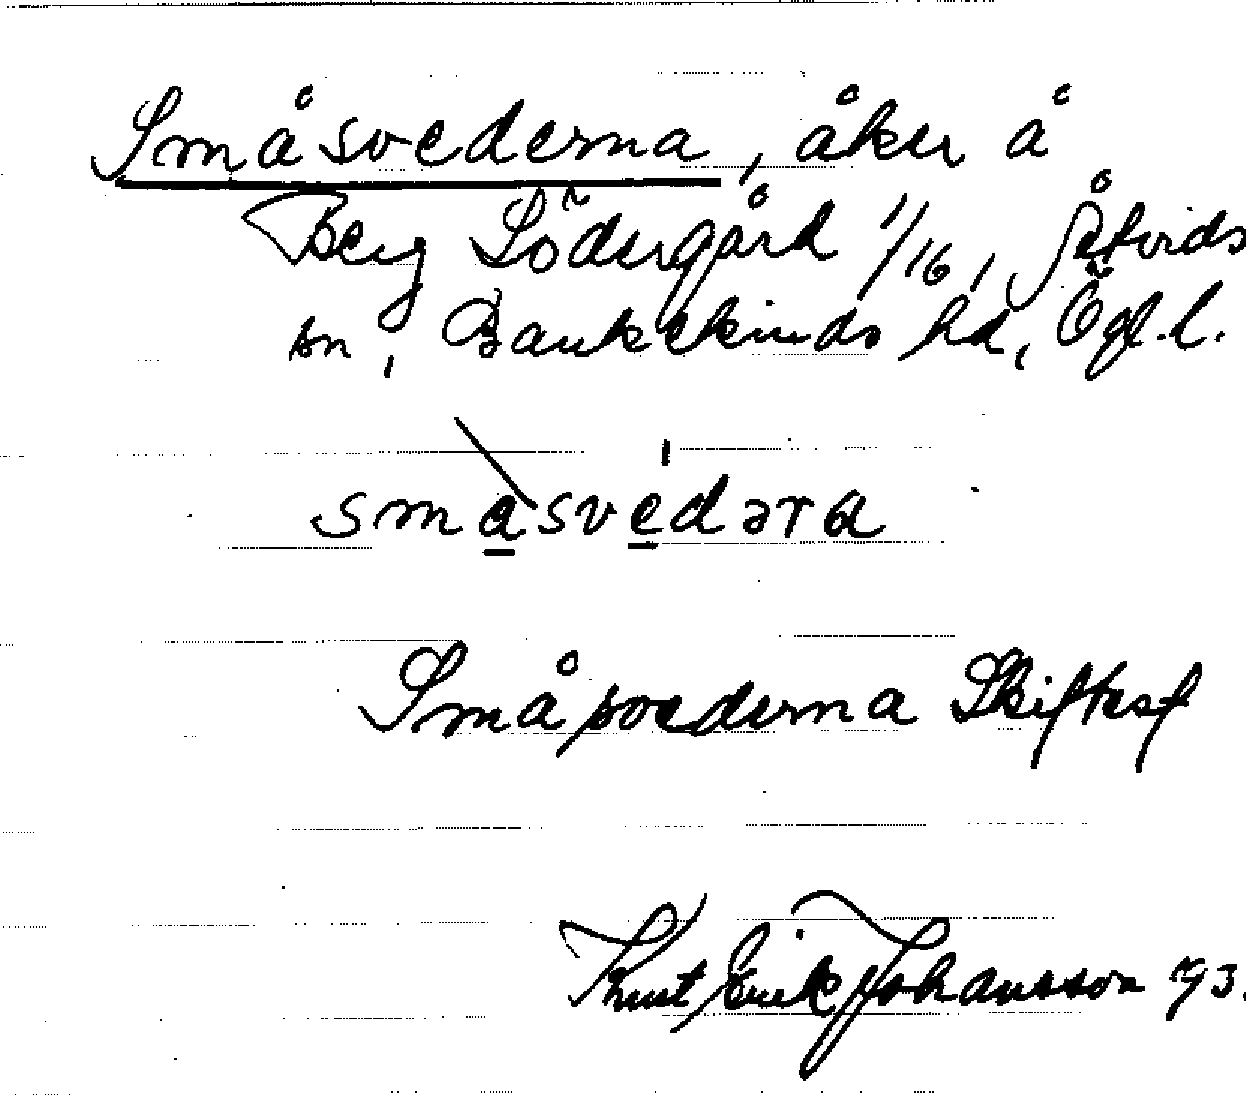 Småsvederna, åker å
Berg Södergård 1/16, Åtvids
sn, Bankekinds hd, Ögl. l.
smasvedəra
Småsvederna Skiftesf
Knut Erik Johansson 93.